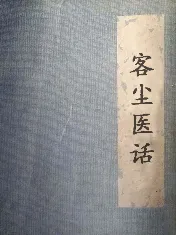 客尘医话